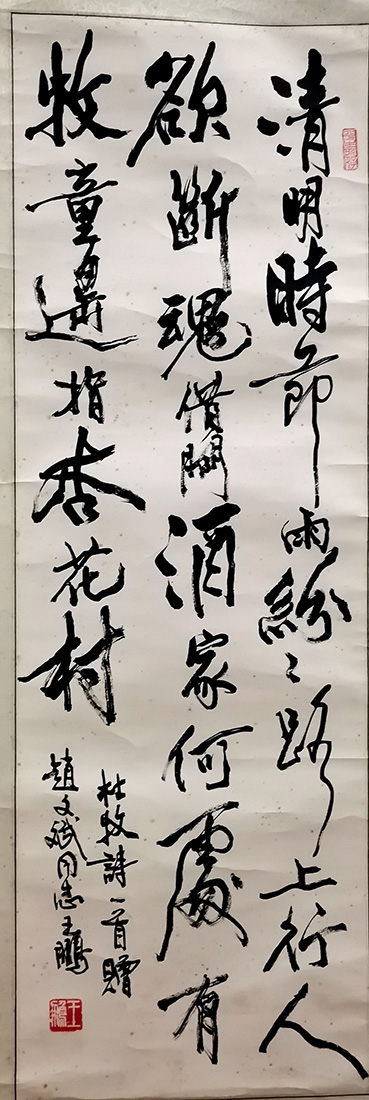 清明時節雨紛〻路上行人
欲斷魂借問酒家何處有
牧童遙指杏花村
杜牧詩一首贈
趙文斌同志王鵬
王鵬